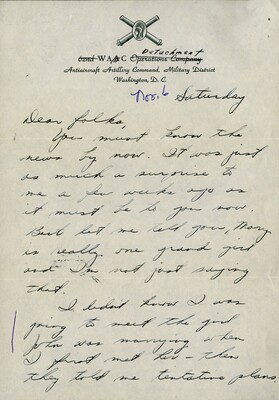 Detachment
62nd WAAC Operations Company
Antiaircraft Artillery Command, Military District
Washington, D. C.
Nov. 6 Saturday
Dear folks,
You must know the
news by now. It was just
as much a surprise to
me a few weeks ago as
it must be to you now.
But let me tell you, Mary
is really one grand girl
and I'm not just saying
that.
I didn't know I was
going to meet the girl
John was marrying when
I first met her – then
they told me tentative plans